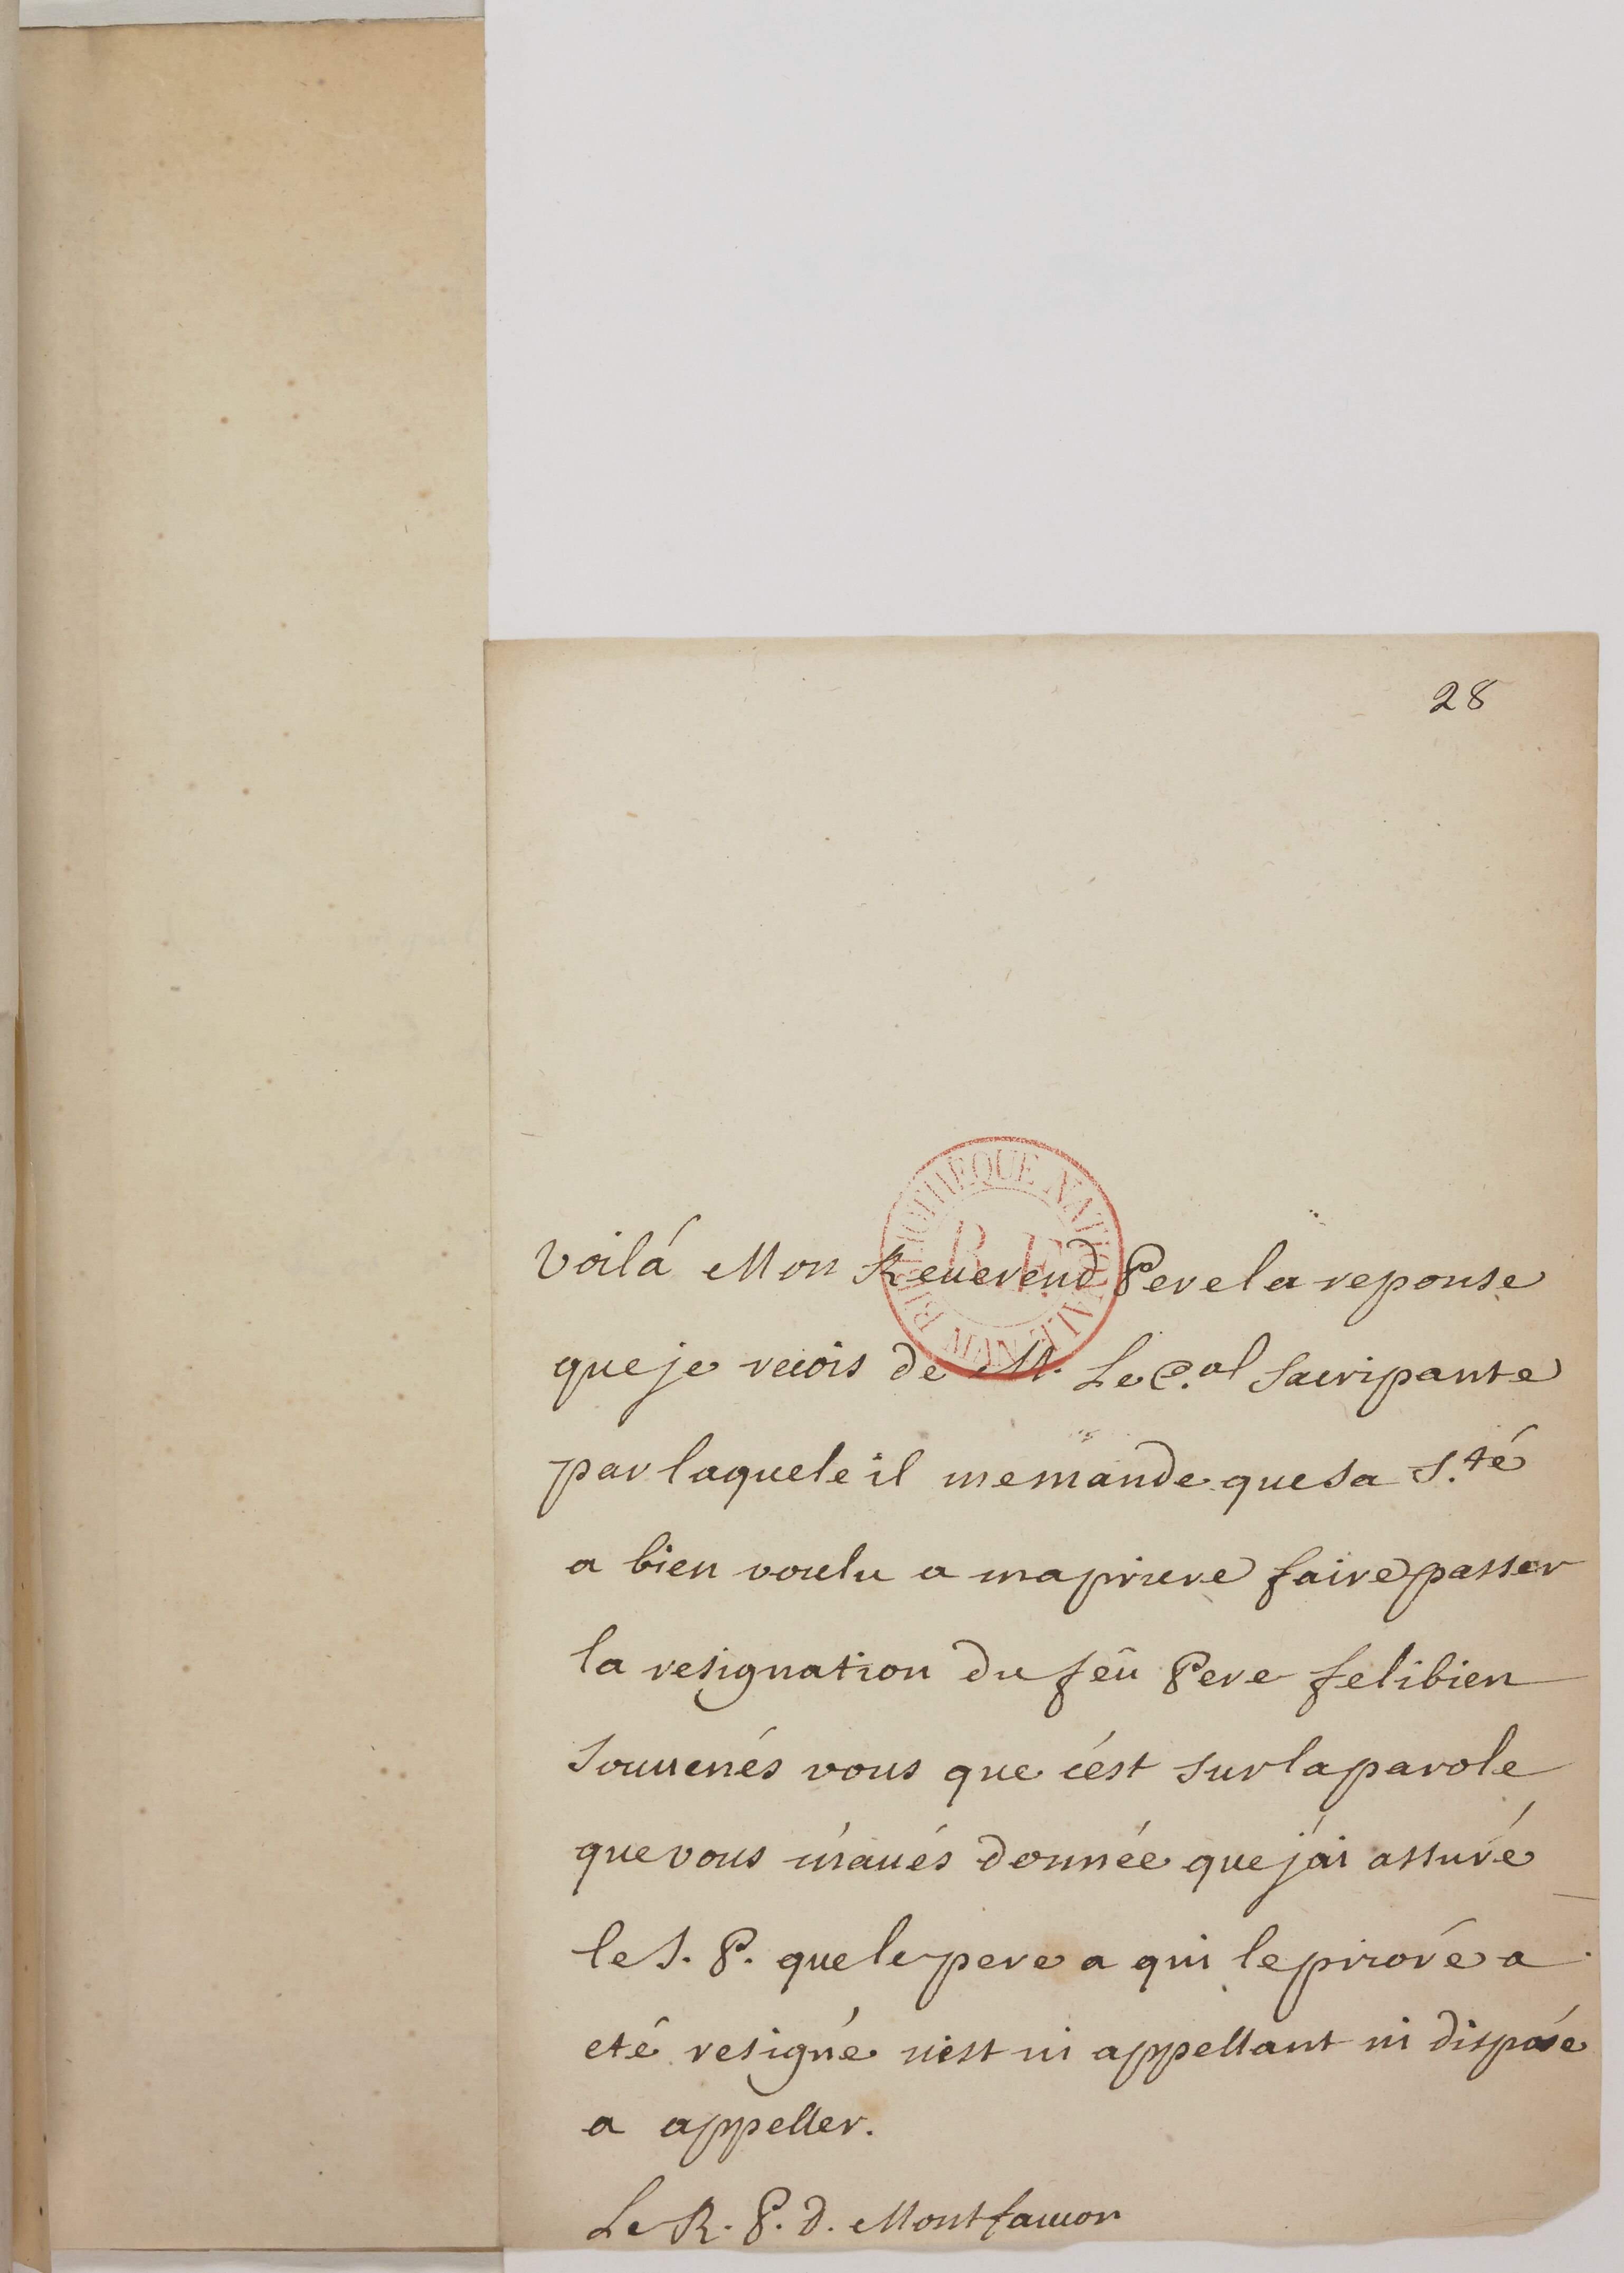 28
BIBLIOTHEQUE NATIONALE MSS
R.F.
Voilá Mon Reuerend Pere la reponse
que je recois de M. Le C.al Sacripante
par laquele il me mande que sa S.té
a bien voulu a ma priere faire passer
la resignation du feû Pere felibien
souuenés vous que c'est sur la parole
que vous m'aués donnée que j'ai assuré
le S. P. que le pere a qui le prioré a
eté resigné n'est ni appellant ni disposé
a appeller.
Le R. P. d. Montfaucon